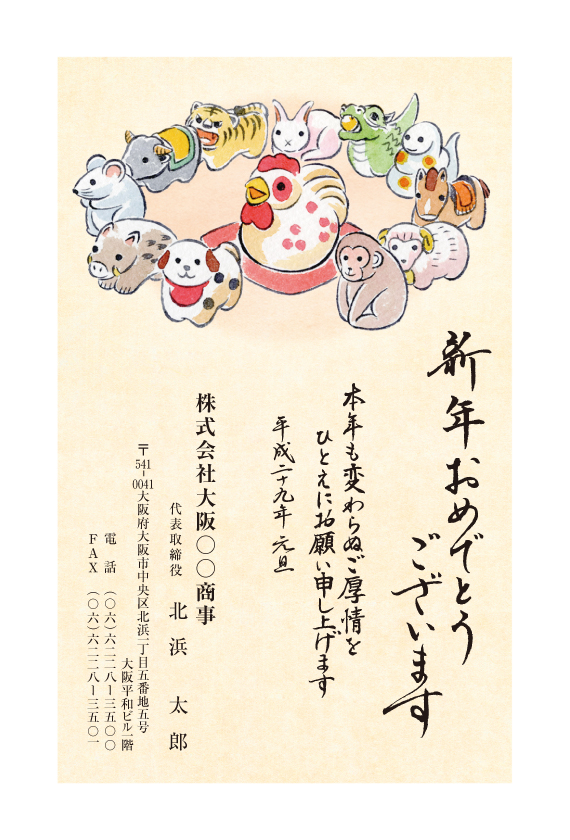 新年おめでとう
ございます
本年も変わらぬご厚情を
ひとえにお願い申し上げます
平成二十九年 元旦
株式会社大阪〇〇商事
代表取締役 北浜 太郎
〒541-0041大阪府大阪市中央区北浜二丁目五番地五号
大阪平和ビル一階
電話 (〇六)六二二八ー三五〇〇
FAX (〇六)六二二八ー三五〇一